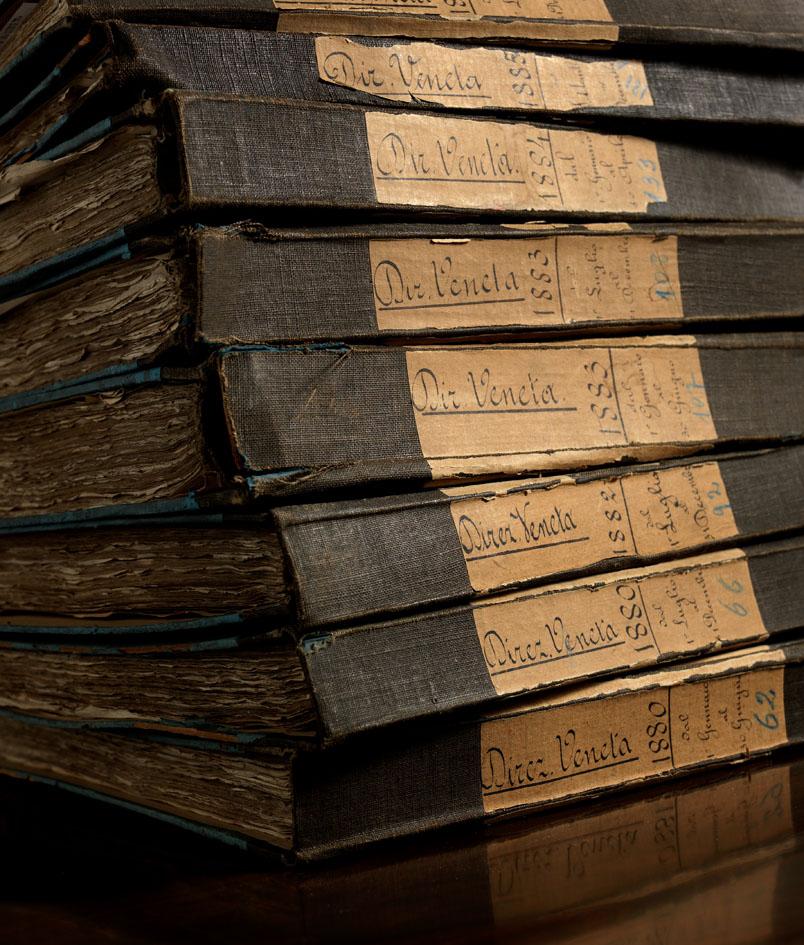 Dir. Veneta 1885
Dir. Veneta. 1884 dal 1° Gennaio al Aprile 133
Dir. Veneta 1883 dal 1° Luglio al Dicembre 108
Dir. Veneta. 1883 dal 1° Gennaio al 30 Giugno 107
Direz. Veneta 1882 dal 1° Luglio al Decemb 92
Direz. Veneta 1880 dal 1° Luglio al Dicemb 66
Direz. Veneta 1880 dal 1° Gennaio al 30 Giugno 62